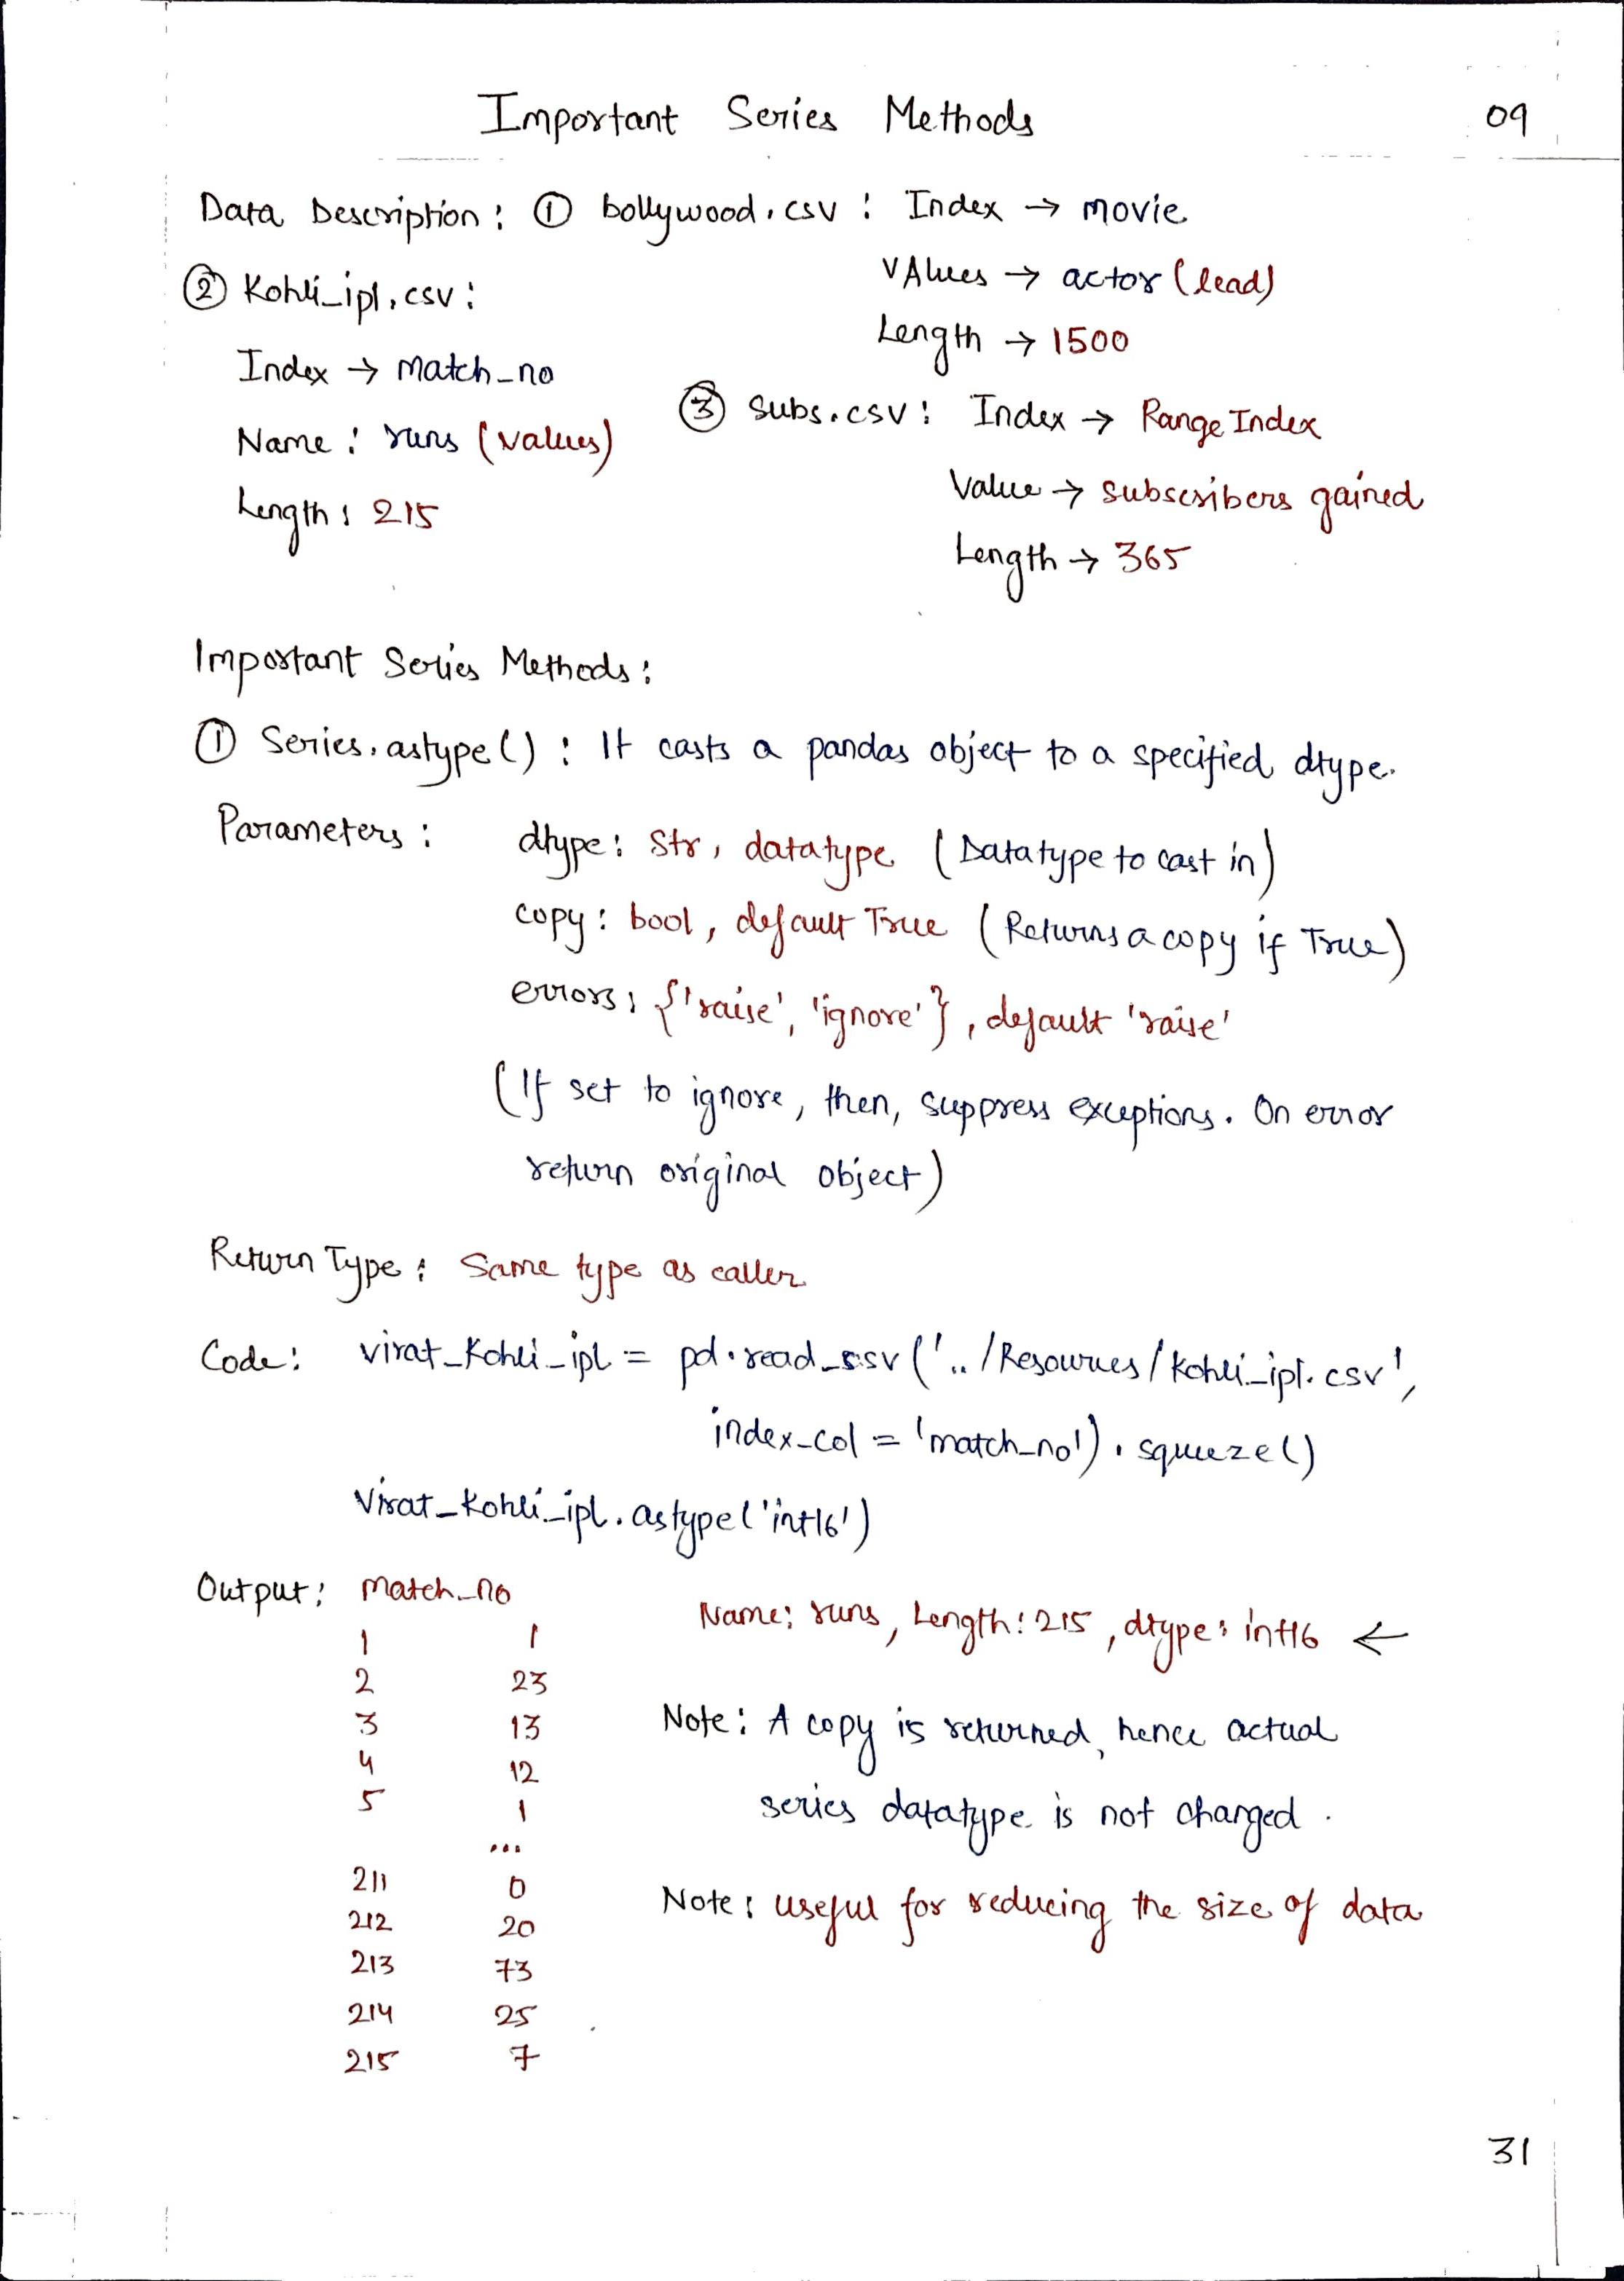 Important Series Methods
09
Data Description: ① bollywood.csv: Index → movie
Values → actor (lead)
Length → 1500
② Kohli_ipl.csv:
Index → Match_no
Name: runs (values)
Length: 215
③ Subs.csv: Index → Range Index
Value → subscribers gained
Length → 365
Important Series Methods:
① Series.astype(): It casts a pandas object to a specified dtype.
Parameters: dtype: Str, datatype (Datatype to cast in)
copy: bool, default True (Returns a copy if True)
errors: {'raise', 'ignore'}, default 'raise'
(If set to ignore, then, suppress exceptions. On error
return original object)
Return Type: Same type as caller
Code: virat_Kohli_ipl = pd.read_csv('../Resources/kohli_ipl.csv',
index_col = 'match_no').squeeze()
Virat_Kohli_ipl.astype('int16')
Output: match_no
1 1
2 23
3 13
4 12
5 1
...
211 0
212 20
213 73
214 25
215 7
Name: runs, Length: 215, dtype: int16 ←
Note: A copy is returned, hence actual
series datatype is not changed.
Note: useful for reducing the size of data
31